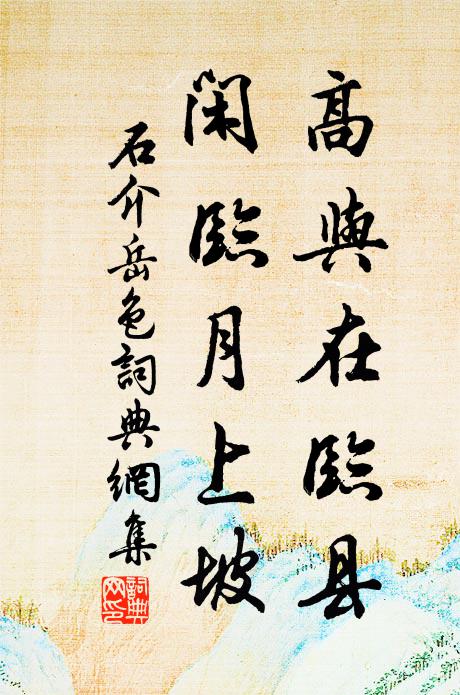 高興在臨县
閑臨月上坡
石介岳色詞典網集
詞典网印